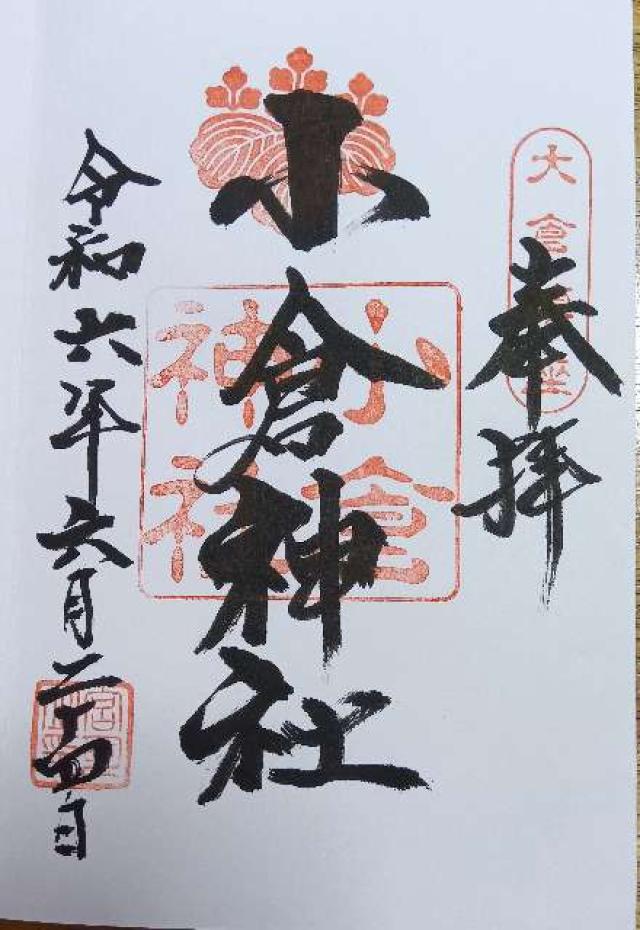 奉拝
小倉神社
小倉
神社
令和六年六月二十四日